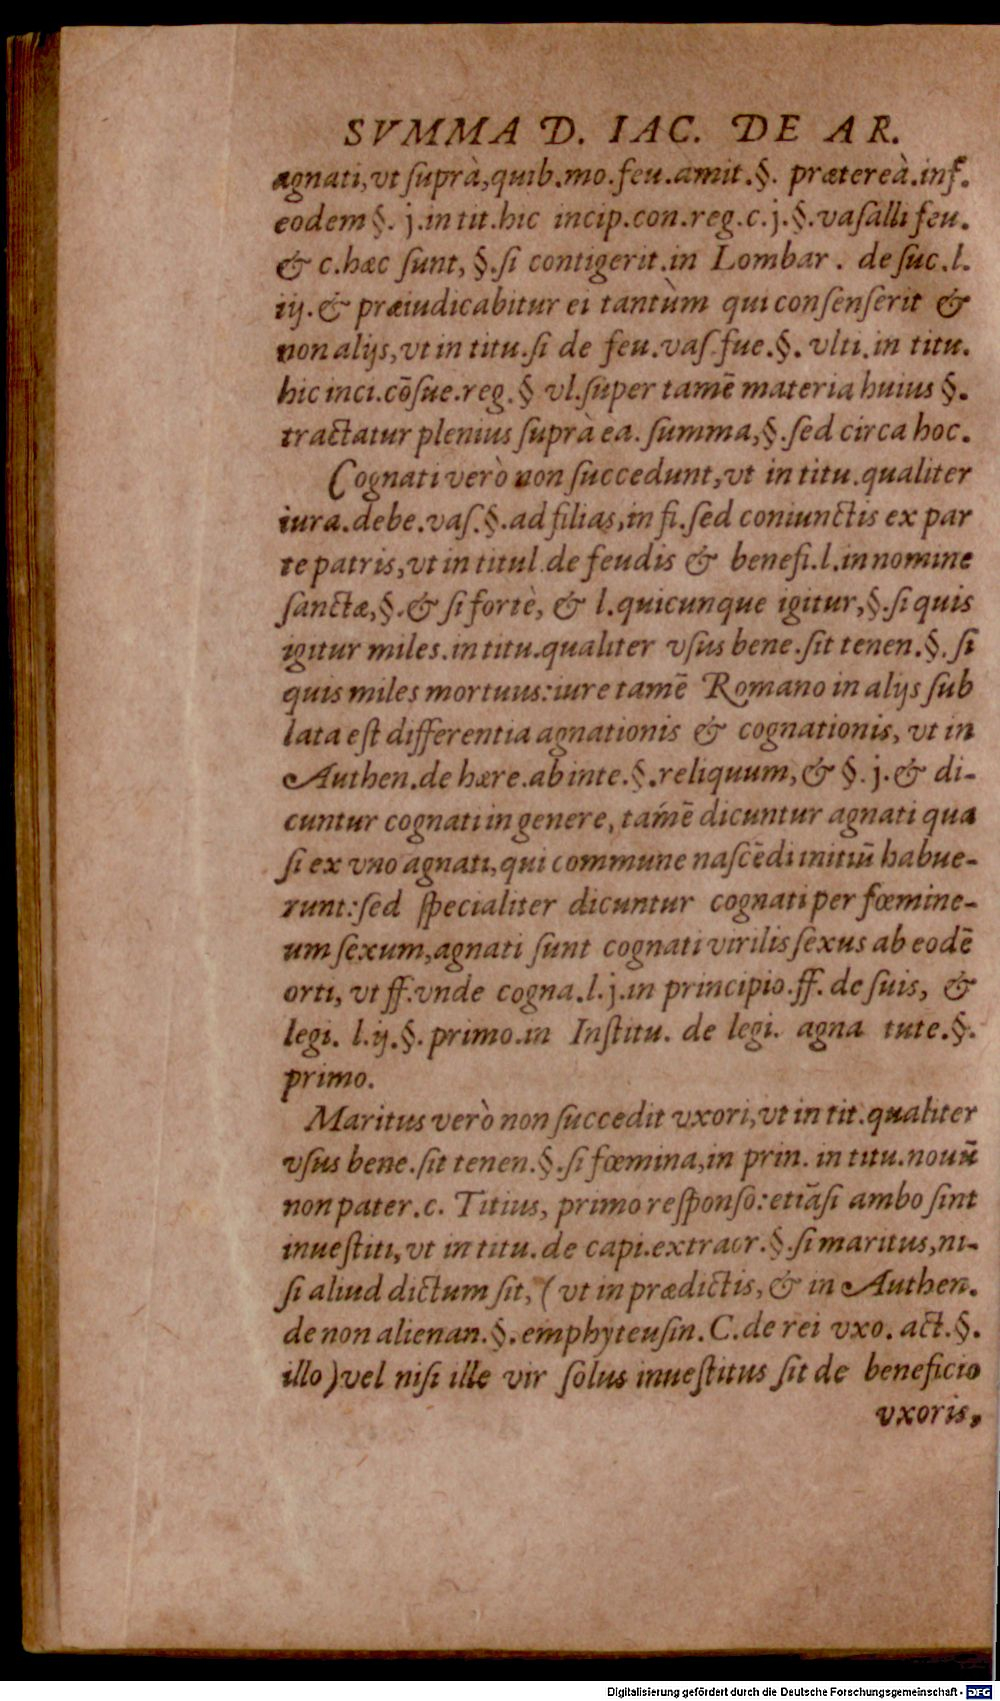 SVMMA D. IAC. DE AR.
agnati, vt suprà, quib.mo.feu.amit.§. præterea̓.inf.
eodem §. j.in tit.hic incip.con.reg.c.j.§.vasalli feu.
& c.hæc sunt, §.si contigerit.in Lombar. de suc.l.
iij.& præiudicabitur ei tantùm qui consenserit &
non alijs, vt in titu.si de feu.vas.fue.§. vlti.in titu.
hic inci.cōsue.reg.§ vl.super tamē materia huius §.
tractatur plenius suprà ea. summa,§.sed circa hoc.
Cognati verò non succedunt, vt in titu.qualiter
iura.debe.vas.§.ad filias, in fi.sed coniunctis ex par
te patris, vt in titul.de feudis & benefi.l.in nomine
sanctæ,§.& si fortè, & l.quicunque igitur,§.si quis
igitur miles.in titu.qualiter vsus bene.sit tenen.§. si
quis miles mortuus: iure tamē Romano in alijs sub
lata est differentia agnationis & cognationis, vt in
Authen.de hære.ab inte.§.reliquum, & §.j.& di-
cuntur cognati in genere, tamē dicuntur agnati qua
si ex vno agnati, qui commune nascēdi initiū habue-
runt: sed specialiter dicuntur cognati per fœmine-
um sexum, agnati sunt cognati virilis sexus ab eodē
orti, vt ff.vnde cogna.l.j.in principio.ff. de suis, &
legi. l.ij.§. primo.in Institu. de legi. agna tute.§.
primo.
Maritus verò non succedit vxori, vt in tit.qualiter
vsus bene.sit tenen.§.si fœmina, in prin. in titu.nouū
non pater.c. Titius, primo responso: etiāsi ambo sint
inuestiti, vt in titu. de capi.extraor.§.si maritus, ni-
si aliud dictum sit, ( vt in prædictis, & in Authen.
de non alienan.§.emphyteusin.C.de rei vxo. act.§.
illo ) vel nisi ille vir solus inuestitus sit de beneficio
vxoris,
Digitalisierung gefördert durch die Deutsche Forschungsgemeinschaft - DFG